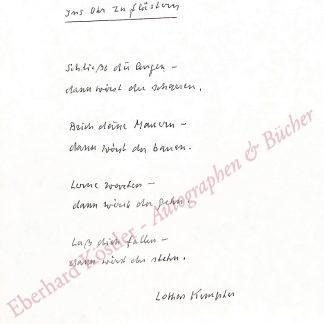 Ins Ohr zu flüstern
Schließe die Augen –
dann wirst du schauen.
Brich deine Mauern –
dann wirst du bauen.
Lerne warten –
dann wirst du gehn.
Laß dich fallen –
dann wirst du stehn.
Lothar Kempter
Eberhard Köstler - Autographen & Bücher